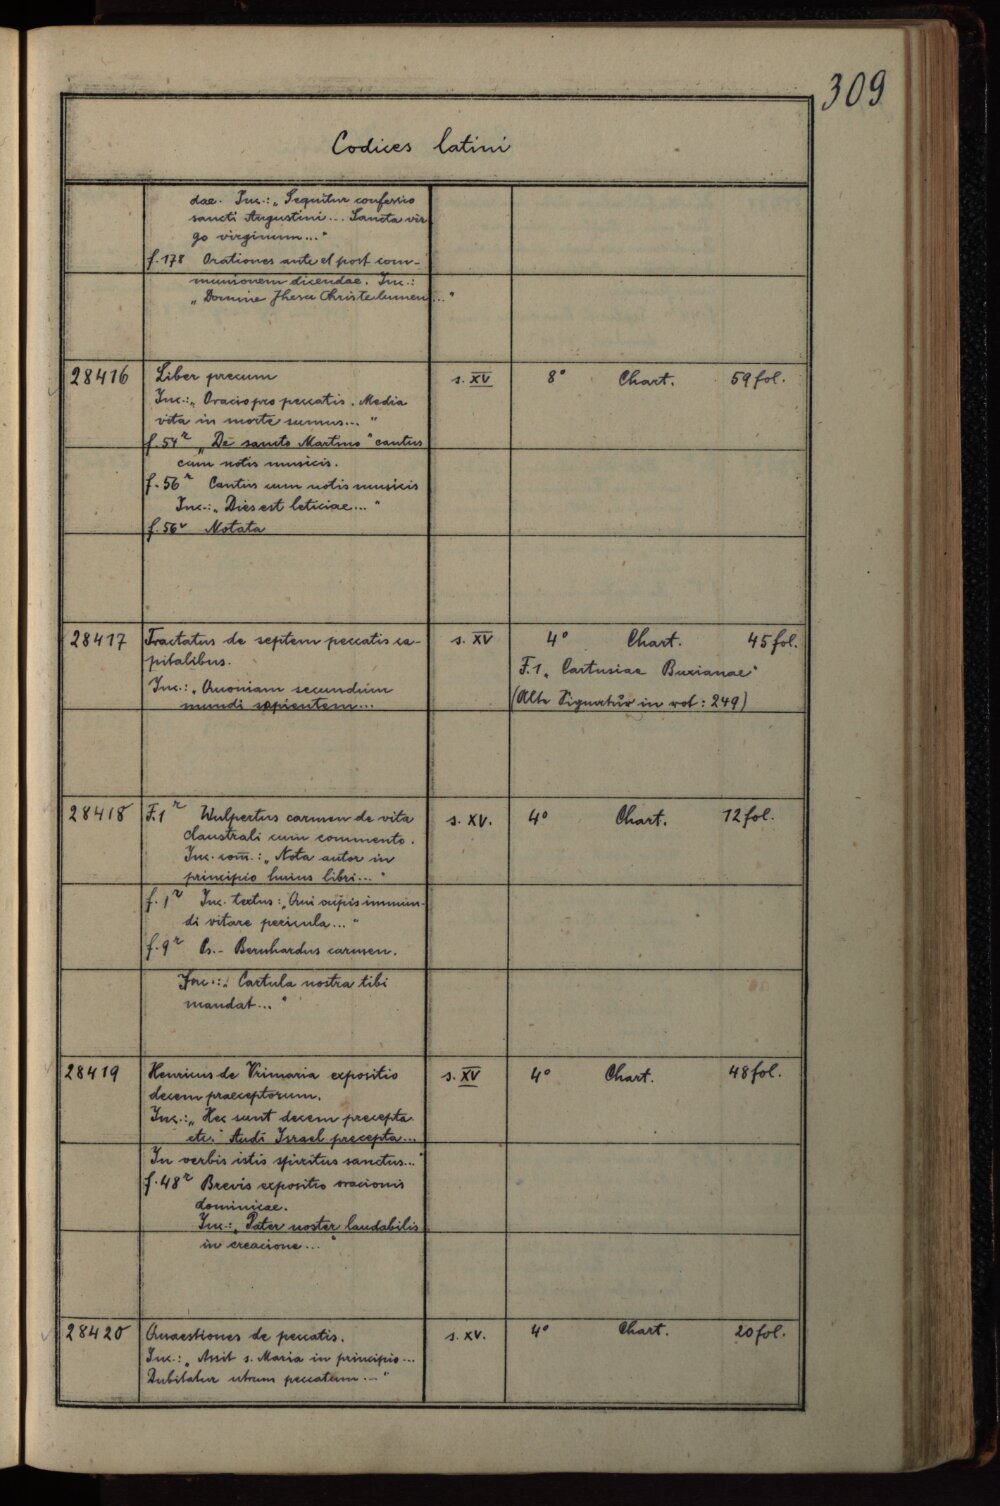 309
Codices latini
dae. Inc.: „Sequitur confessio
sancti Augustini... Sancta vir
go virginum..."
f. 178 Orationes ante et post com-
munionem dicendae. Inc.:
„Domine Jhesu Christe lumen..."
28416 Liber precum s. XV 8° Chart. 59 fol.
Inc.: „Oracio pro peccatis. Media
vita in morte sumus..."
f. 54r „De sancto Martino" cantus
cum notis musicis.
f. 56r Cantus cum notis musicis
Inc.: „Dies est leticiae..."
f. 56v Notata
28417 Tractatus de septem peccatis ca- s. XV 4° Chart. 45 fol.
pitalibus. F. 1 „Cartusiae Buxianae"
Inc.: „Quoniam secundum (Alte Signatur in rot: 249)
mundi sapientem...
28418 F. 1r Wulpertus carmen de vita s. XV. 4° Chart. 12 fol.
claustrali cum commento.
Inc. com̄.: „Nota autor in
principio huius libri..."
f. 1r Inc. textus: „Qui cupis immun-
di vitare pericula..."
f. 9r Ps.- Bernhardus carmen.
Inc.: „Cartula nostra tibi
mandat..."
28419 Henricus de Vrimaria expositio s. XV 4° Chart. 48 fol.
decem praeceptorum.
Inc.: „Hec sunt decem precepta
etc." Audi Israel precepta...
In verbis istis spiritus sanctus..."
f. 48r Brevis expositio oracionis
dominicae.
Inc.: „Pater noster laudabilis
in creacione..."
28420 Quaestiones de peccatis. s. XV. 4° Chart. 20 fol.
Inc.: „Assit s. Maria in principio...
Dubitatur utrum peccatum..."